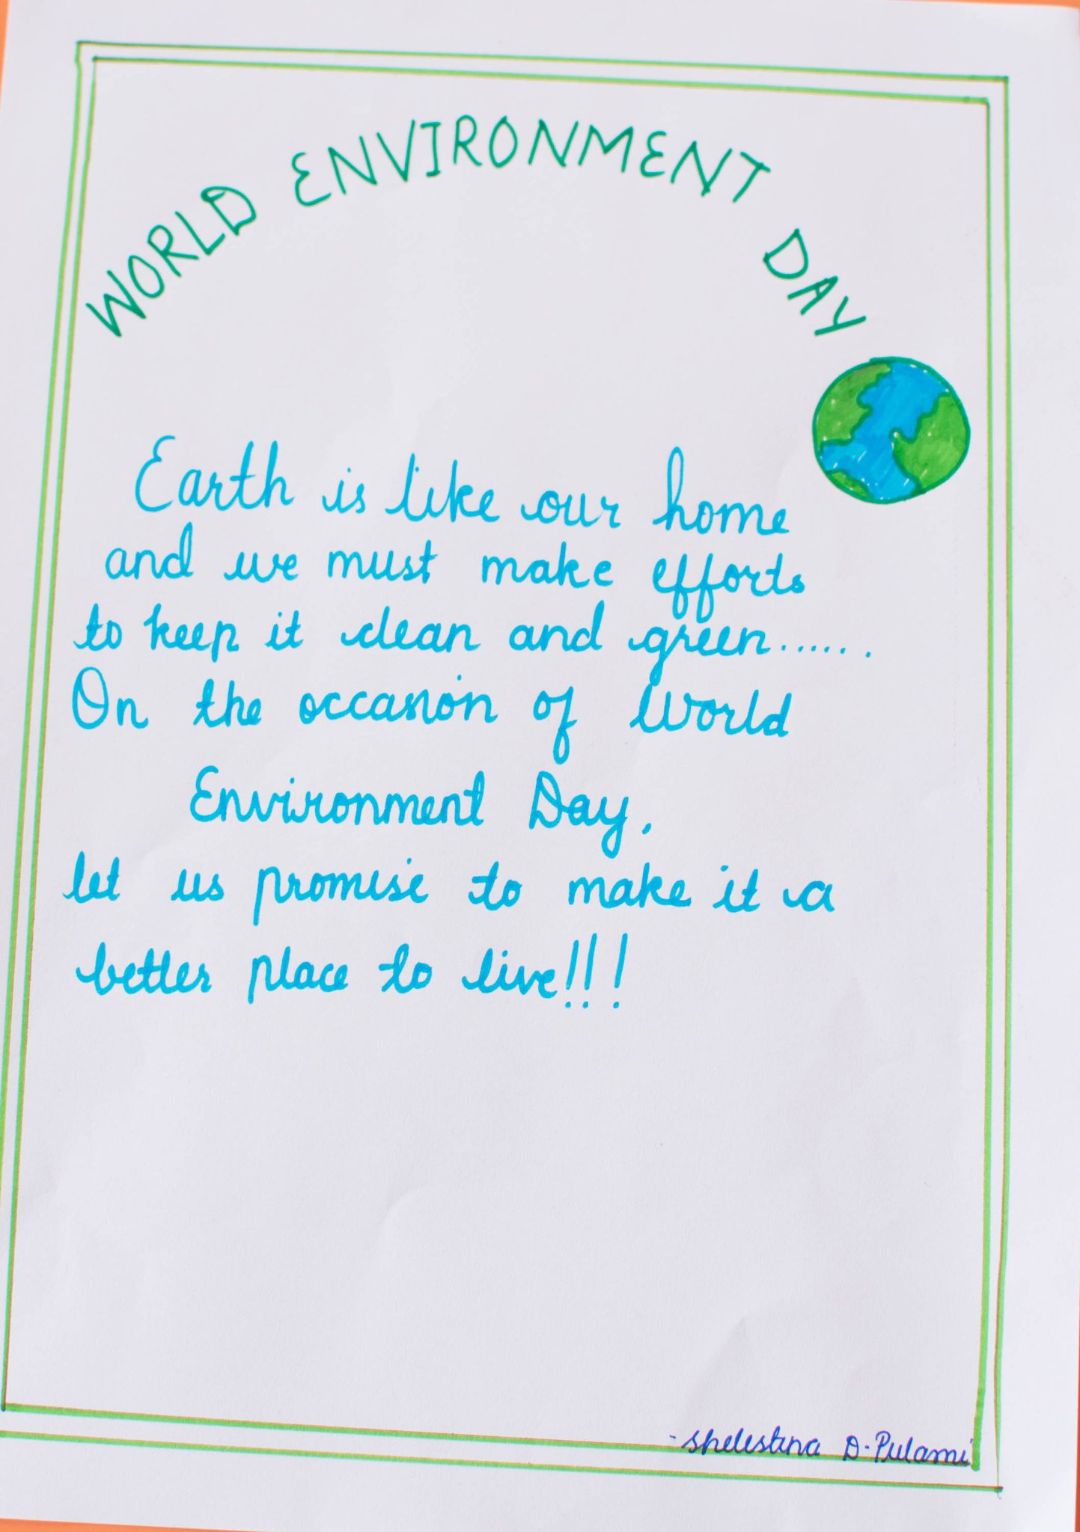 WORLD ENVIRONMENT DAY
Earth is like our home
and we must make efforts
to keep it clean and green......
On the occasion of World
Environment Day,
let us promise to make it a
better place to live!!!
-Shelestina D. Pulami